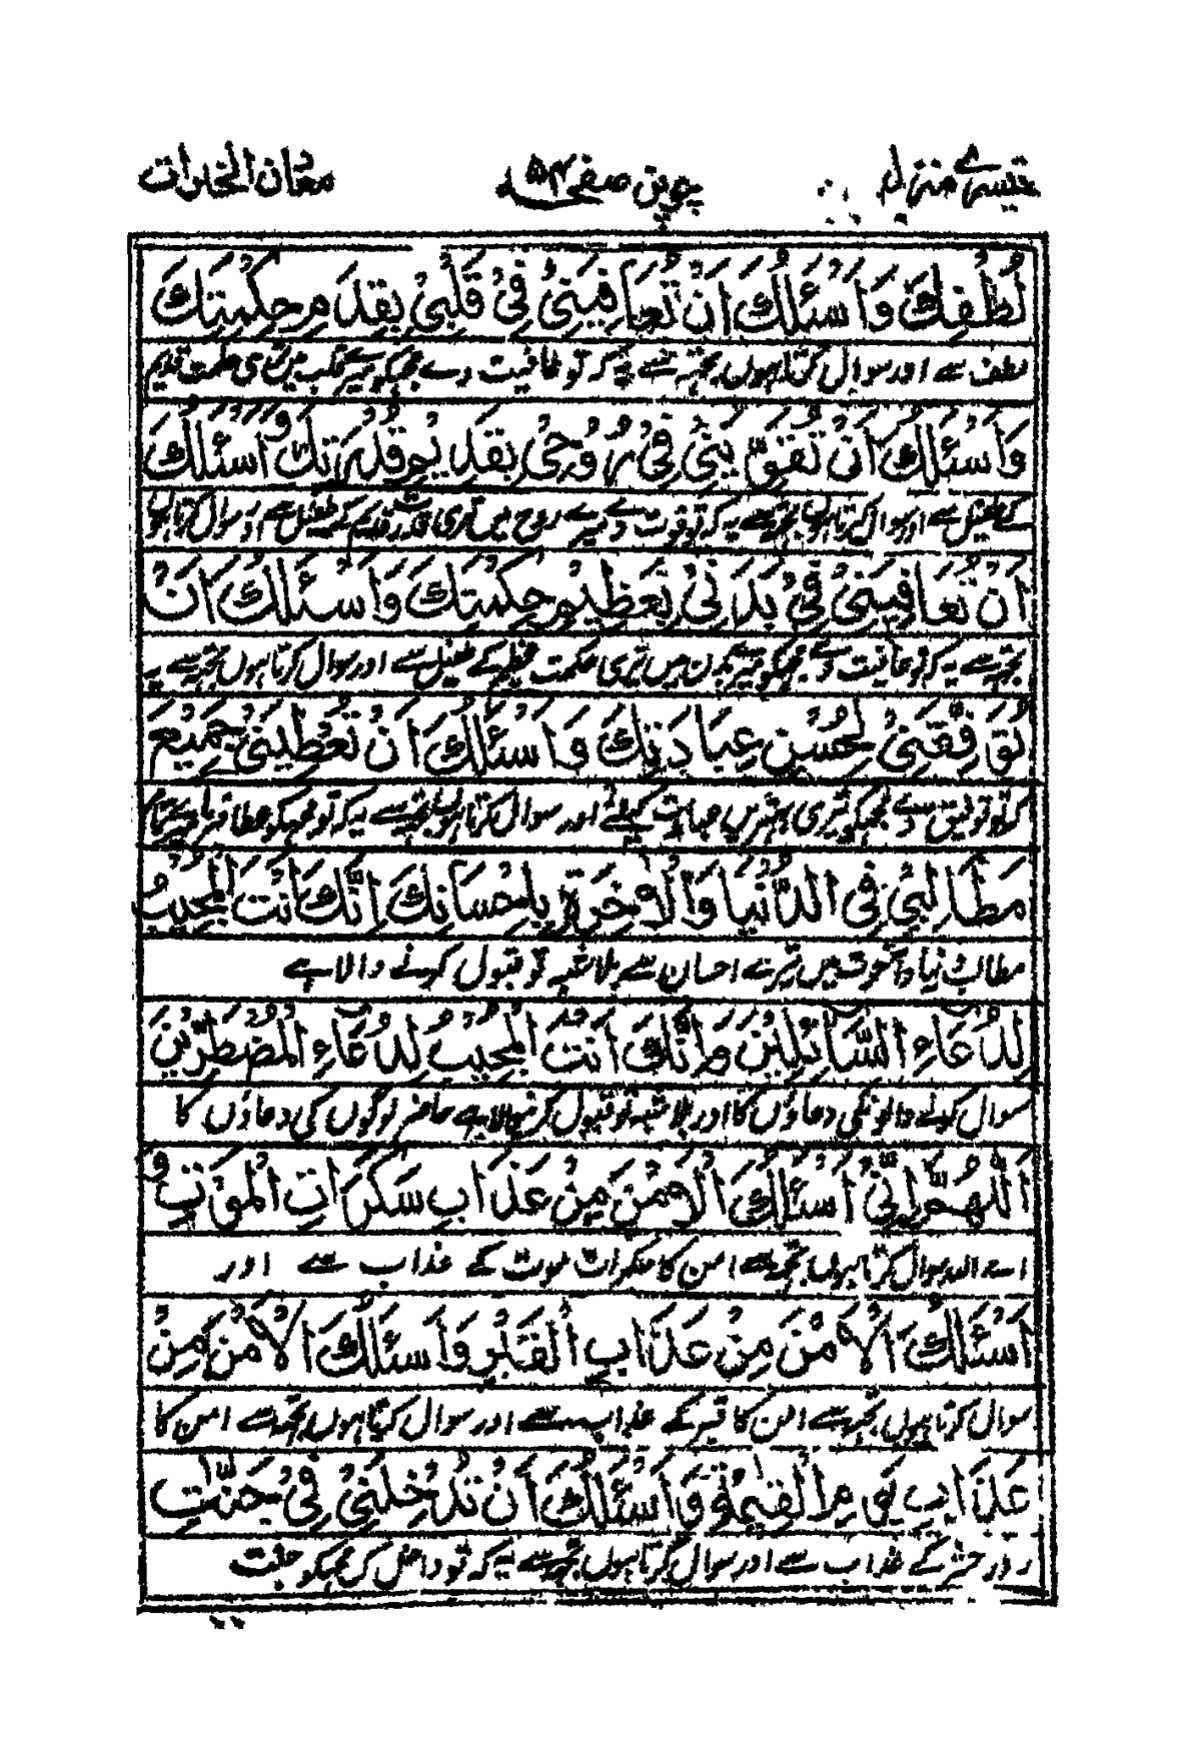 تیسرے منزل چوپن صفحہ ۵۴ معدن الخیرات
لُطْفِكَ وَاَسْئَلُكَ اَنْ تُعَافِيَنِيْ فِيْ قَلْبِيْ بِقِدَمِ حِكْمَتِكَ
لطف سے اور سوال کرتا ہوں تجھ سے یہ کہ تو عافیت دے مجھکو میرے قلب میں تیری حکمت قدیم
وَاَسْئَلُكَ اَنْ تُقَوِّيَنِيْ فِيْ رُوْحِيْ بِقَدِيْمِ قُدْرَتِكَ وَاَسْئَلُكَ
کے طفیل سے اور سوال کرتا ہوں تجھ سے یہ کہ تو قوت دے میرے روح میں تیری قدرت قدیم کے طفیل سے اور سوال کرتا ہوں
اَنْ تُعَافِيَنِيْ فِيْ بَدَنِيْ بِعَظِيْمِ حِكْمَتِكَ وَاَسْئَلُكَ اَنْ
تجھ سے یہ کہ تو عافیت دے مجھکو میرے بدن میں تیری حکمت عظیم کے طفیل سے اور سوال کرتا ہوں تجھ سے یہ
تُوَفِّقَنِيْ لِحُسْنِ عِبَادَتِكَ وَاَسْئَلُكَ اَنْ تُعْطِيَنِيْ جَمِيْعَ
کہ تو توفیق دے مجھکو تیری بہترین عبادت کیلئے اور سوال کرتا ہوں تجھ سے یہ کہ تو مجھکو عطا فرما میرے تمام
مَطَالِبِيْ فِى الدُّنْيَا وَالْاٰخِرَةِ بِاِحْسَانِكَ اِنَّكَ اَنْتَ الْمُجِيْبُ
مطالب دنیا و آخرت میں تیرے احسان سے بلا شبہ تو قبول کرنے والا ہے
لِدُعَاءِ السَّائِلِيْنَ وَاِنَّكَ اَنْتَ الْمُجِيْبُ لِدُعَاءِ الْمُضْطَرِّيْنَ
سوال کرنے والونکی دعاؤں کا اور بلا شبہ تو قبول کرنیوالا ہے لوگوں کی دعاؤں کا
اَللّٰهُمَّ اِنِّيْ اَسْئَلُكَ الْاَمْنَ مِنْ عَذَابِ سَكَرَاتِ الْمَوْتِ وَ
اے اللہ سوال کرتا ہوں تجھ سے امن کا سکرات موت کے عذاب سے اور
اَسْئَلُكَ الْاَمْنَ مِنْ عَذَابِ الْقَبْرِ وَاَسْئَلُكَ الْاَمْنَ مِنْ
سوال کرتا ہوں تجھ سے امن کا قبر کے عذاب سے اور سوال کرتا ہوں تجھ سے امن کا
عَذَابِ يَوْمِ الْقِيٰمَةِ وَاَسْئَلُكَ اَنْ تُدْخِلَنِيْ فِيْ جَنّٰتِ
روز حشر کے عذاب سے اور سوال کرتا ہوں تجھ سے یہ کہ تو داخل کر مجھکو جنت